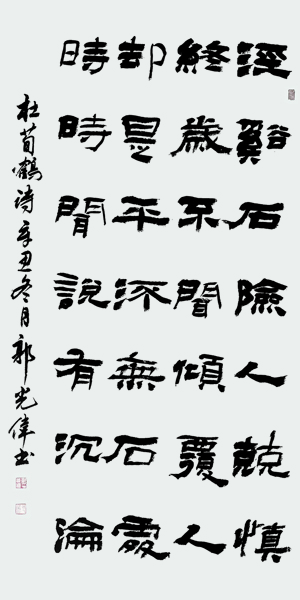 涇谿石險人兢慎
終歲不聞傾覆人
却是平流無石處
時時聞說有沉淪
杜荀鶴诗辛丑冬月郭光偉书